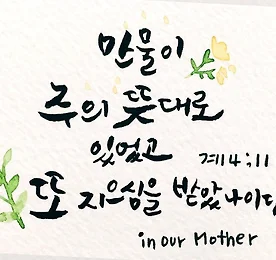 만물이
주의 뜻대로
있었고
계4;11
또 지으심을 받았나이다
in our Mother